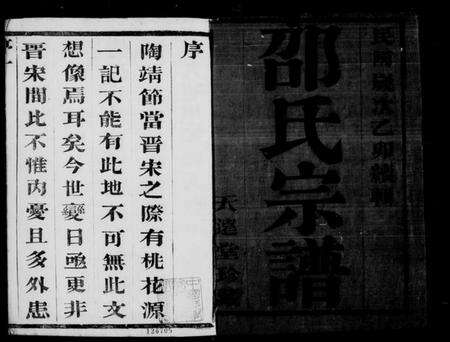 民國歲次乙卯續輯
邵氏宗譜
序
陶靖節當晉宋之際有桃花源
一記不能有此地不可無此文
想像焉耳矣今世變日亟更非
晉宋間比不惟內憂且多外患
序一
124705